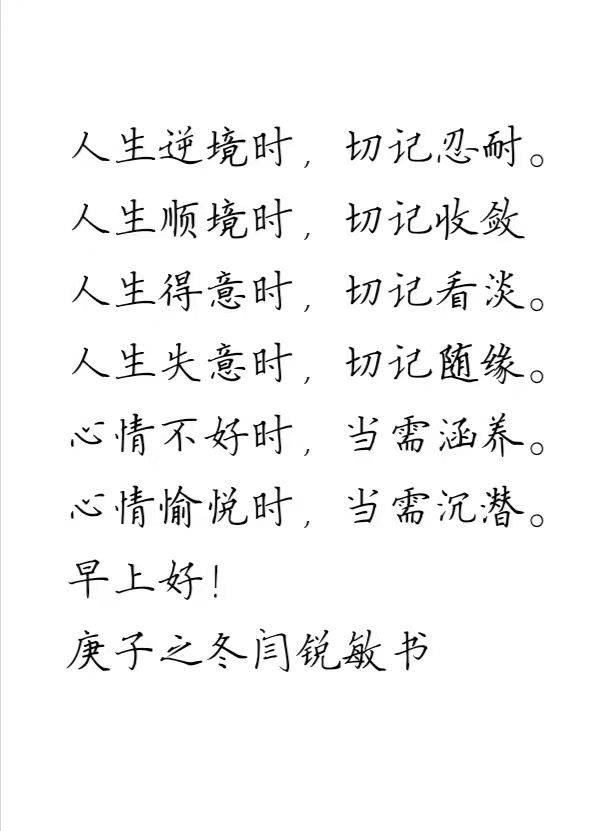 人生逆境时，切记忍耐。
人生顺境时，切记收敛
人生得意时，切记看淡。
人生失意时，切记随缘。
心情不好时，当需涵养。
心情愉悦时，当需沉潜。
早上好！
庚子之冬闫锐敏书